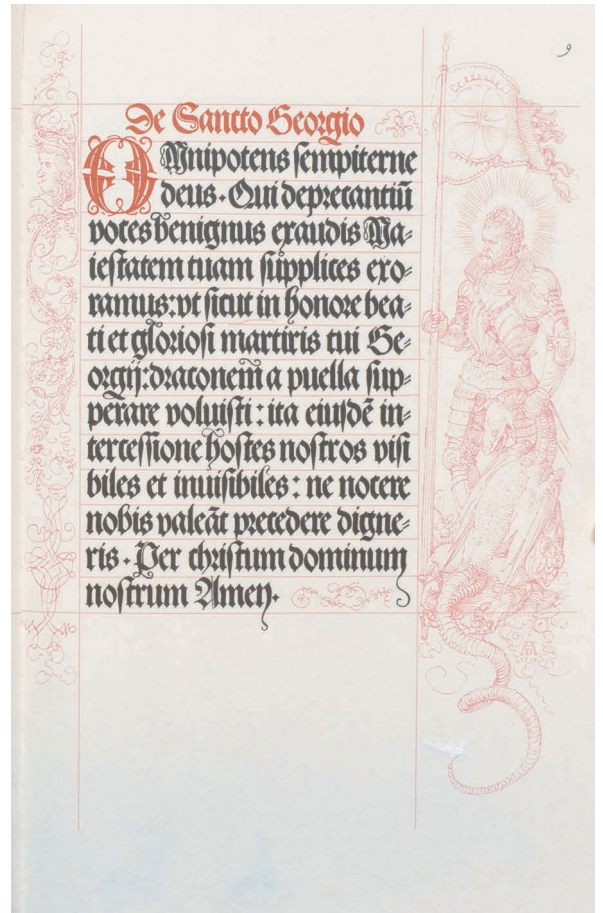 9
De Sancto Georgio
OMnipotens sempiterne
deus. Qui deprecantiū
voces benignus exaudis Ma⸗
iestatem tuam supplices exo⸗
ramus: vt sicut in honore bea⸗
ti et gloriosi martiris tui Ge⸗
orgij: draconem̄ a puella sup⸗
perare voluisti: ita eiusdē in⸗
tercessione hostes nostros visi
biles et inuisibiles: ne nocere
nobis valeāt precedere digne⸗
ris. Per christum dominum
nostrum Amen.
AD